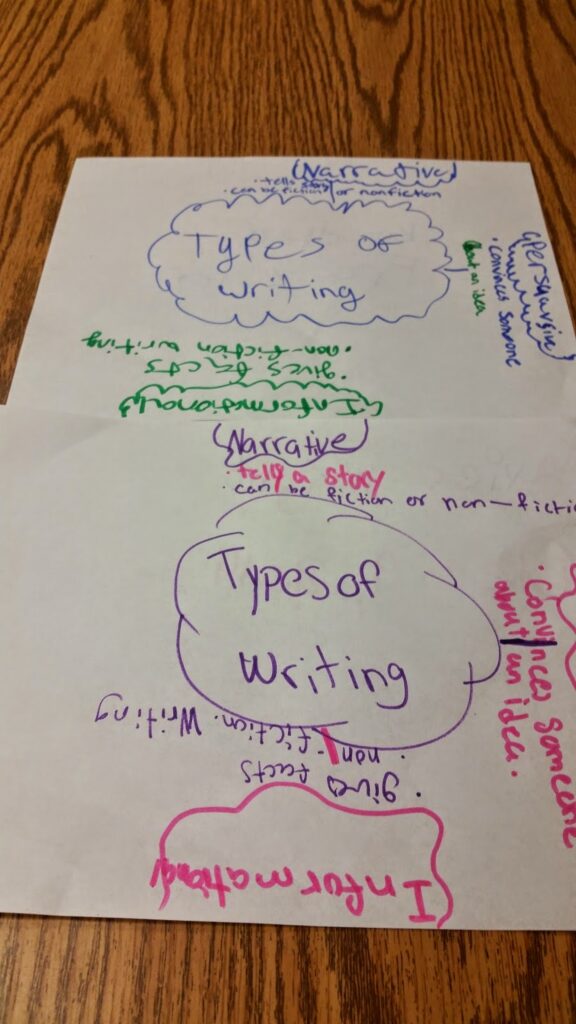 Narrative
• tells story
• can be fiction or nonfiction
Types of
writing
Persuasive
• convinces someone
about an idea
Informational
• gives facts
• non-fiction writing
Narrative
• tells a story
• can be fiction or non-ficti
Types of
Writing
• Convinces someone
about an idea.
Informational
• gives facts
• non-fiction. Writing